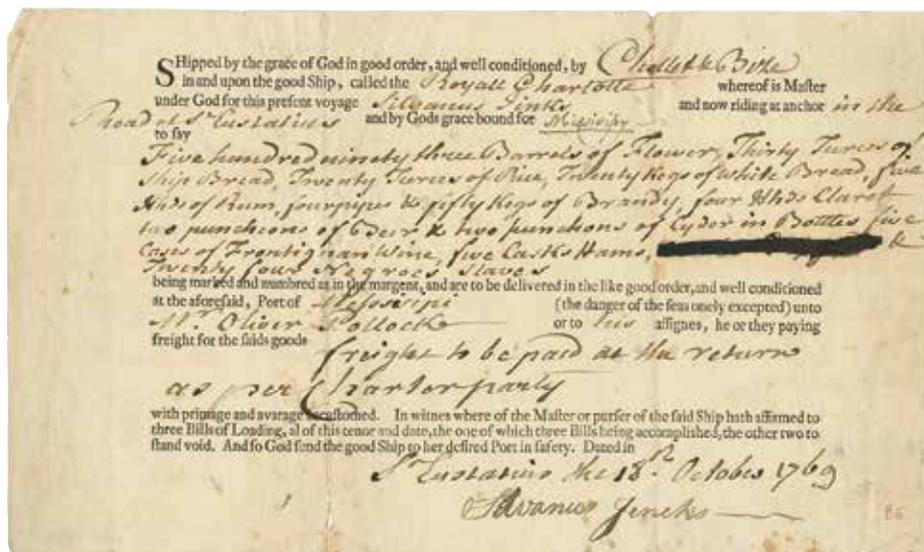 SHipped by the grace of God in good order, and well conditioned, by Chollet &
in and upon the good Ship, called the Royall Charlotte whereof is Master
under God for this preſent voyage Silvanus Jinks and now riding at anchor in the
Road of St Eustatius and by Gods grace bound for Missisipy
to ſay
Five hundred ninety three Barrels of Flower, Thirty Turces of
Ship Bread, Twenty Turces of Rice, Twenty Kegs of White Bread, five
Hhds of Rum, four pipes & fifty Kegs of Brandy, four Hhds Claret
two puncheons of Beer & two punchons of Cyder in Bottles five
Cases of Frontignan Wine, five Casks Hams, &
Twenty four Negroes Slaves
being marked and numbred as in the margent, and are to be delivered in the like good order, and well conditioned
at the aforeſaid, Port of Messisipi (the danger of the ſeas onely excepted) unto
Mr. Oliver Pollock or to his aſſignes, he or they paying
freight for the ſaids goods
freight to be paid at the return
as per Charterparty
with primage and avarage accuſtomed. In witnes where of the Maſter or purſer of the ſaid Ship hath affirmed to
three Bills of Loading, al of this tenor and date, the one of which three Bills being accompliſhed, the other two to
ſtand void. And ſo God ſend the good Ship to her deſired Port in ſafety. Dated in
St Eustatius the 18th October 1769
Silvanus Jencks
86